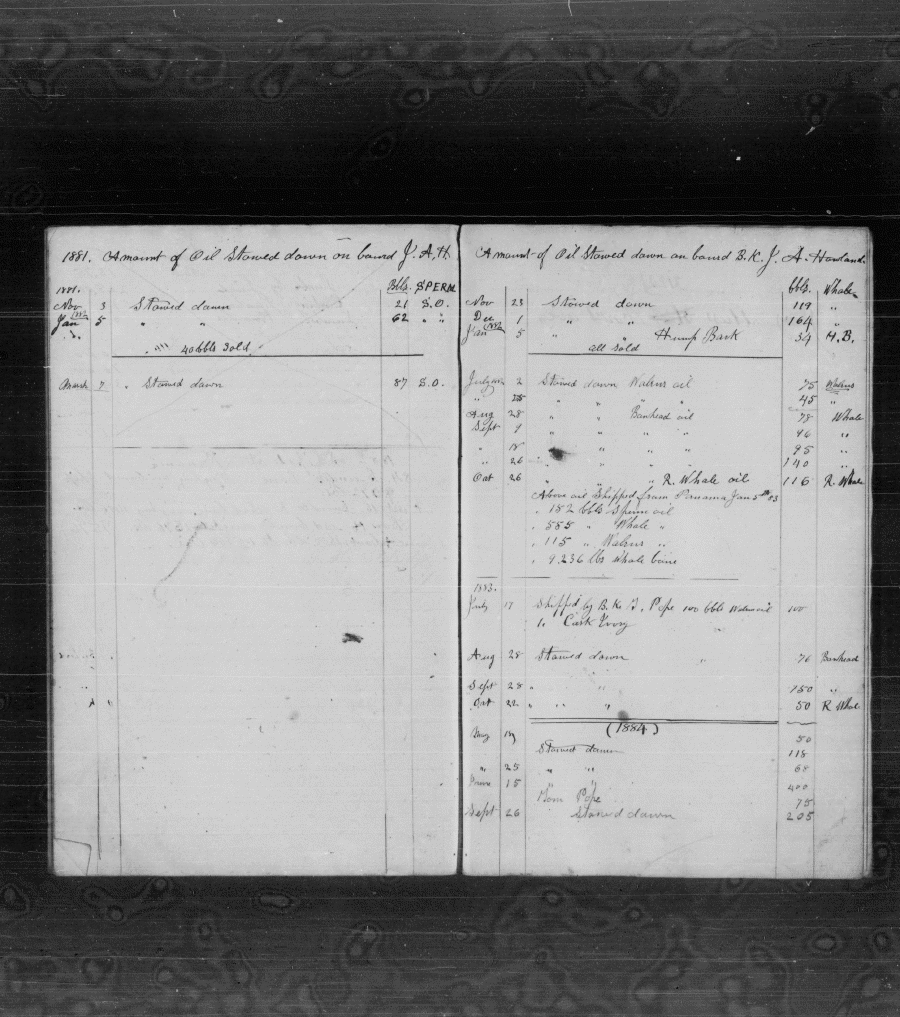 1881. Amount of Oil Stowed down on board J. A. H
1881. Bbls. SPERM
Nov 3 Stowed down 21 S.O.
Jan 5 " " 62 " "
" "" 40 bbls Sold
March 7 " Stowed down 87 S.O.
Amount of Oil Stowed down on board B. K. J. A. Howland.
bbls. Whale
Nov 23 Stowed down 119 "
Dec 1 " " 164 "
Jan 5 " " Hump Back 34 H.B.
all sold
July 2 Stowed down Walrus oil 75 Walrus
" " " " " 45 "
Aug 28 " " Bowhead oil 78 Whale
Sept 9 " " " " 96 "
" " " " " 95 "
" 26 " " " " 140 "
Oct 26 " " " R. Whale oil 116 R. Whale
Above oil Shipped from Panama Jan 5th 83
" 182 bbls Sperm oil
" 585 " Whale "
" 115 " Walrus "
" 9.236 lbs Whale bone
1883.
July 17 Shipped by B. K. J. Pope 100 bbls Walrus oil 100
1 Cask Ivory
Aug 28 Stowed down " 76 Bowhead
Sept 28 " " 150 "
Oct 22 " " " " 50 R Whale
(1884)
May 50
Stowed down 118
" 25 " " 68
June 15 " " 400
Tom Pope 75
Sept 26 Stowed down 205